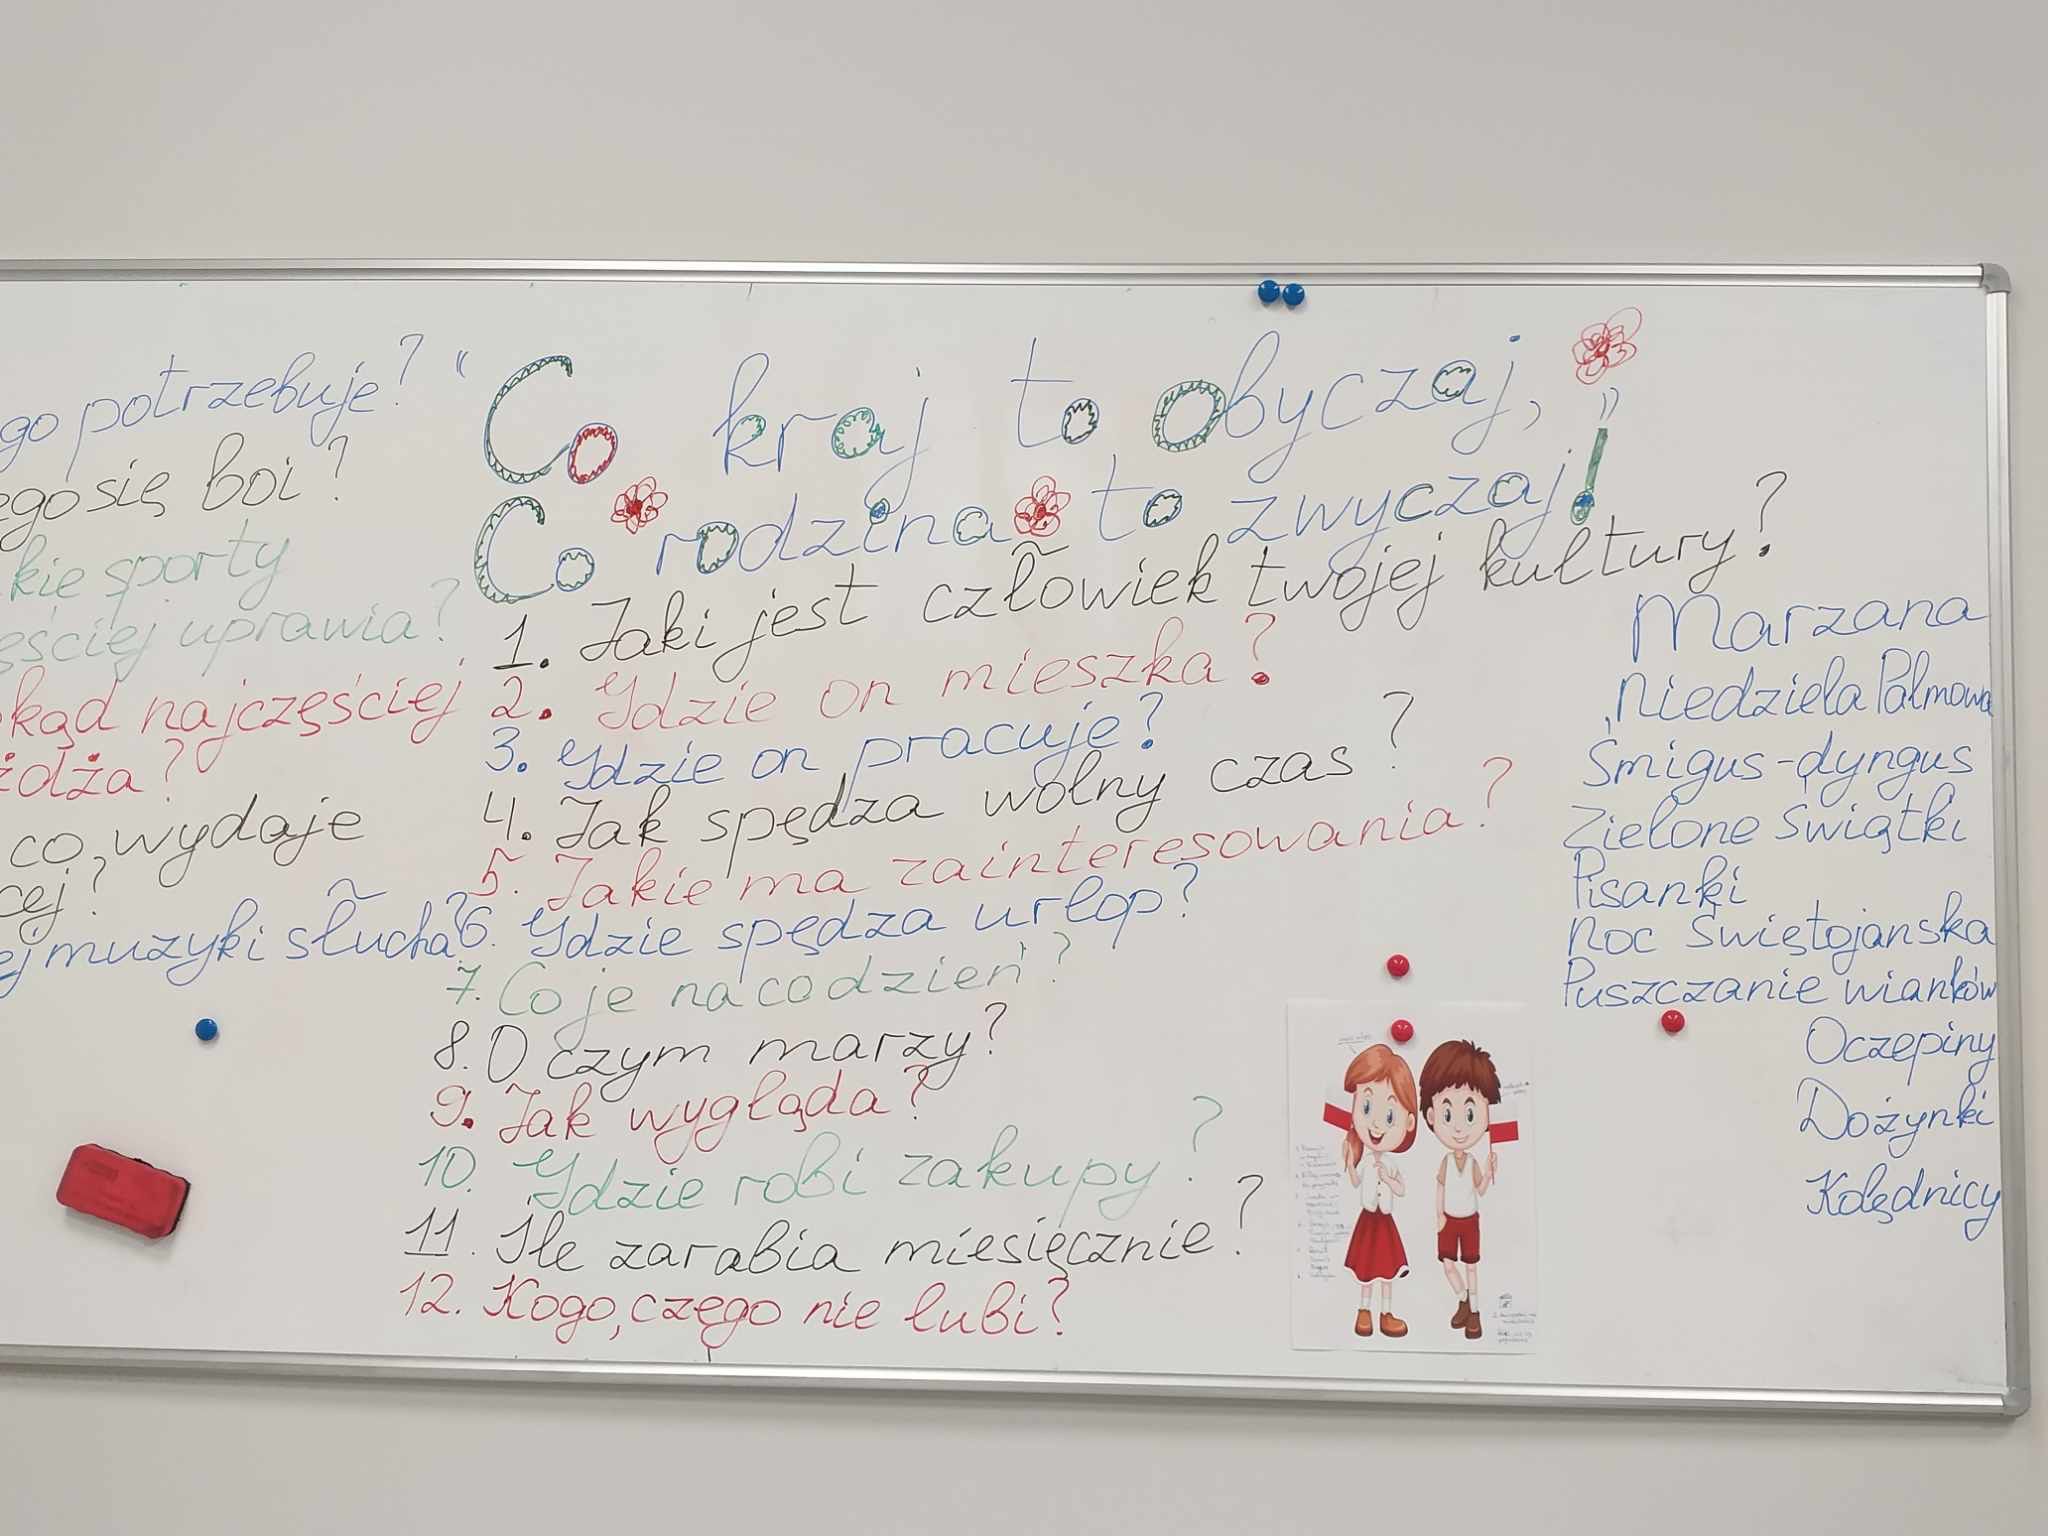 potrzebuje?
się boi?
sporty
uprawia?
najczęściej
co, wydaje
muzyki słucha?
"Co kraj to obyczaj,
Co rodzina to zwyczaj!"
1. Jaki jest człowiek twojej kultury?
2. Gdzie on mieszka?
3. Gdzie on pracuje?
4. Jak spędza wolny czas?
5. Jakie ma zainteresowania?
6. Gdzie spędza urlop?
7. Co je na codzień?
8. O czym marzy?
9. Jak wygląda?
10. Gdzie robi zakupy?
11. Ile zarabia miesięcznie?
12. Kogo, czego nie lubi?
Marzana
Niedziela Palmowa
Śmigus-dyngus
Zielone Świątki
Pisanki
Noc Świętojańska
Puszczanie wianków
Oczepiny
Dożynki
Kolędnicy